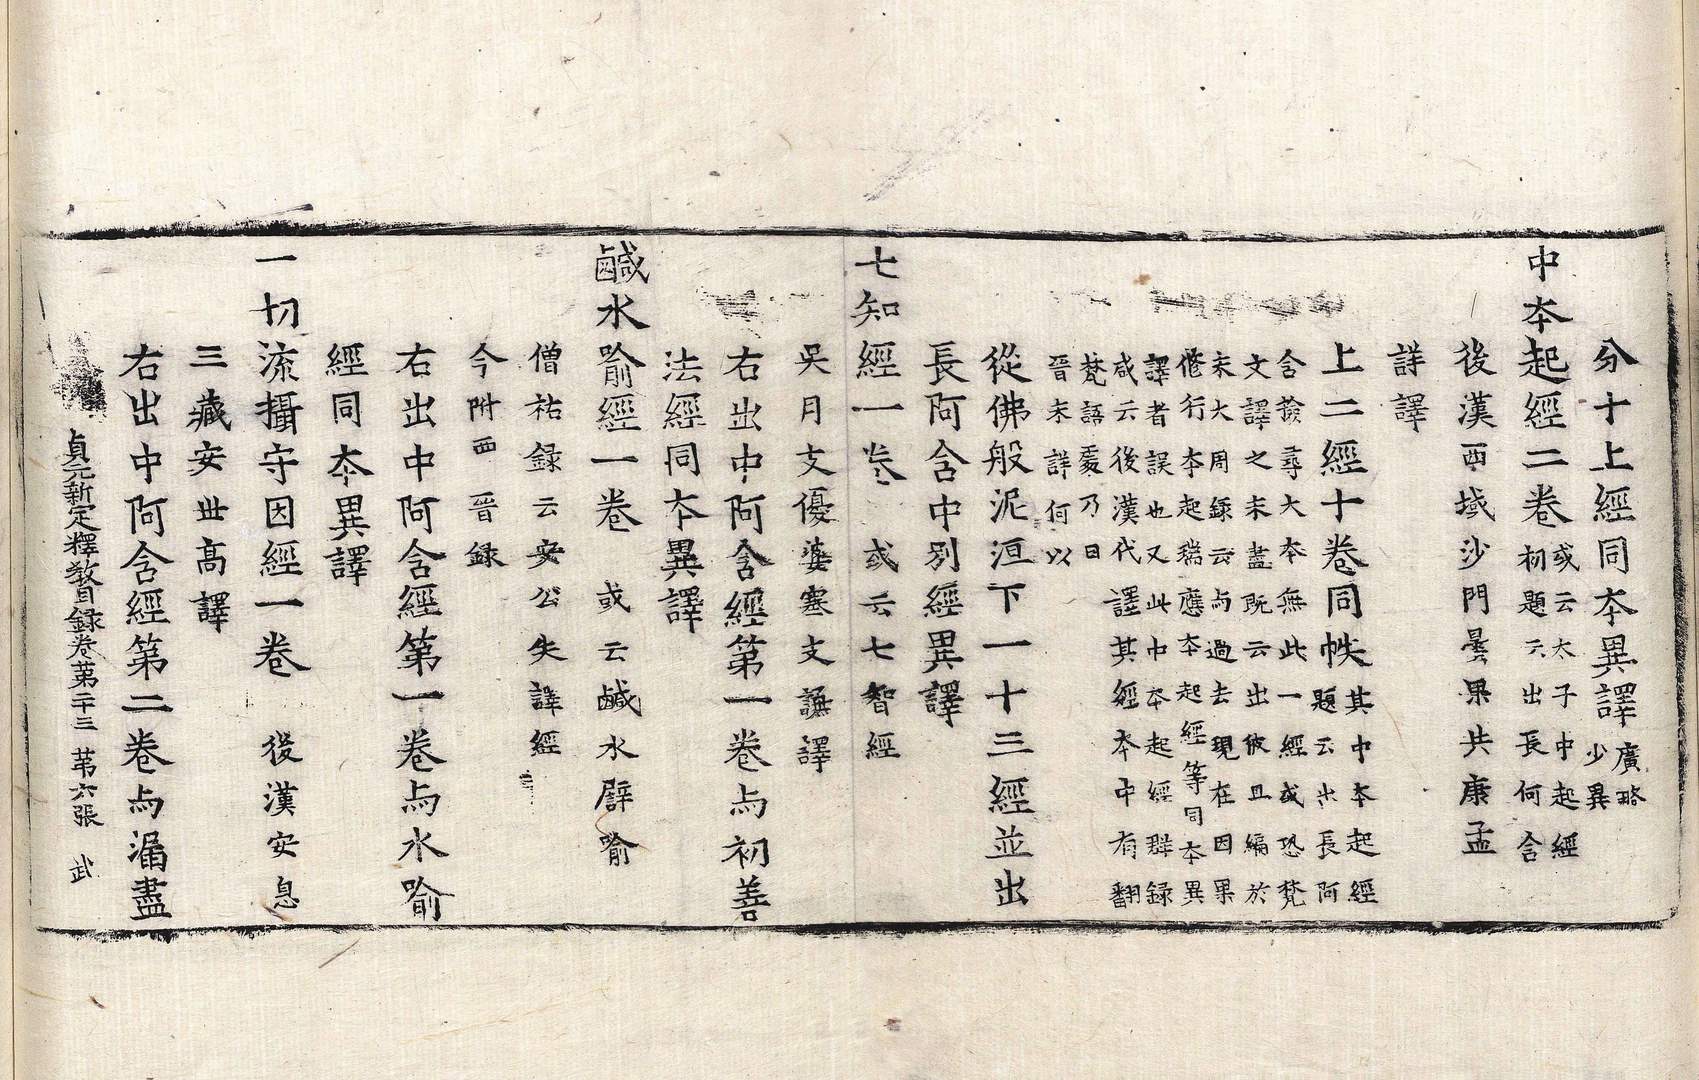 分十上經同本異譯 廣略
少異
中本起經二卷 或云太子中起經
初題云出長何含
後漢西域沙門曇果共康孟
詳譯
上二經十卷同帙 其中本起經
題云出長阿
含撿尋大本無此一經或恐梵
文譯之未盡既云出彼且編於
末大周録云与過去現在因果
修行本起瑞應本起經等同本異
譯者誤也又此中本起經群録
咸云後漢代譯其經本中有翻
梵語處乃曰
晉未詳何以
從佛般泥洹下一十三經並出
長阿含中別經異譯
七知經一卷 或云七智經
吳月支優婆塞支謙譯
右出中阿含經第一卷与初善
法經同本異譯
鹹水喻經一卷 或云鹹水譬喻
僧祐録云安公失譯經
今附西晉録
右出中阿含經第一卷与水喻
經同本異譯
一切流攝守因經一卷 後漢安息
三藏安世高譯
右出中阿含經第二卷与漏盡
貞元新定釋教目録卷第二十三 第六張 武